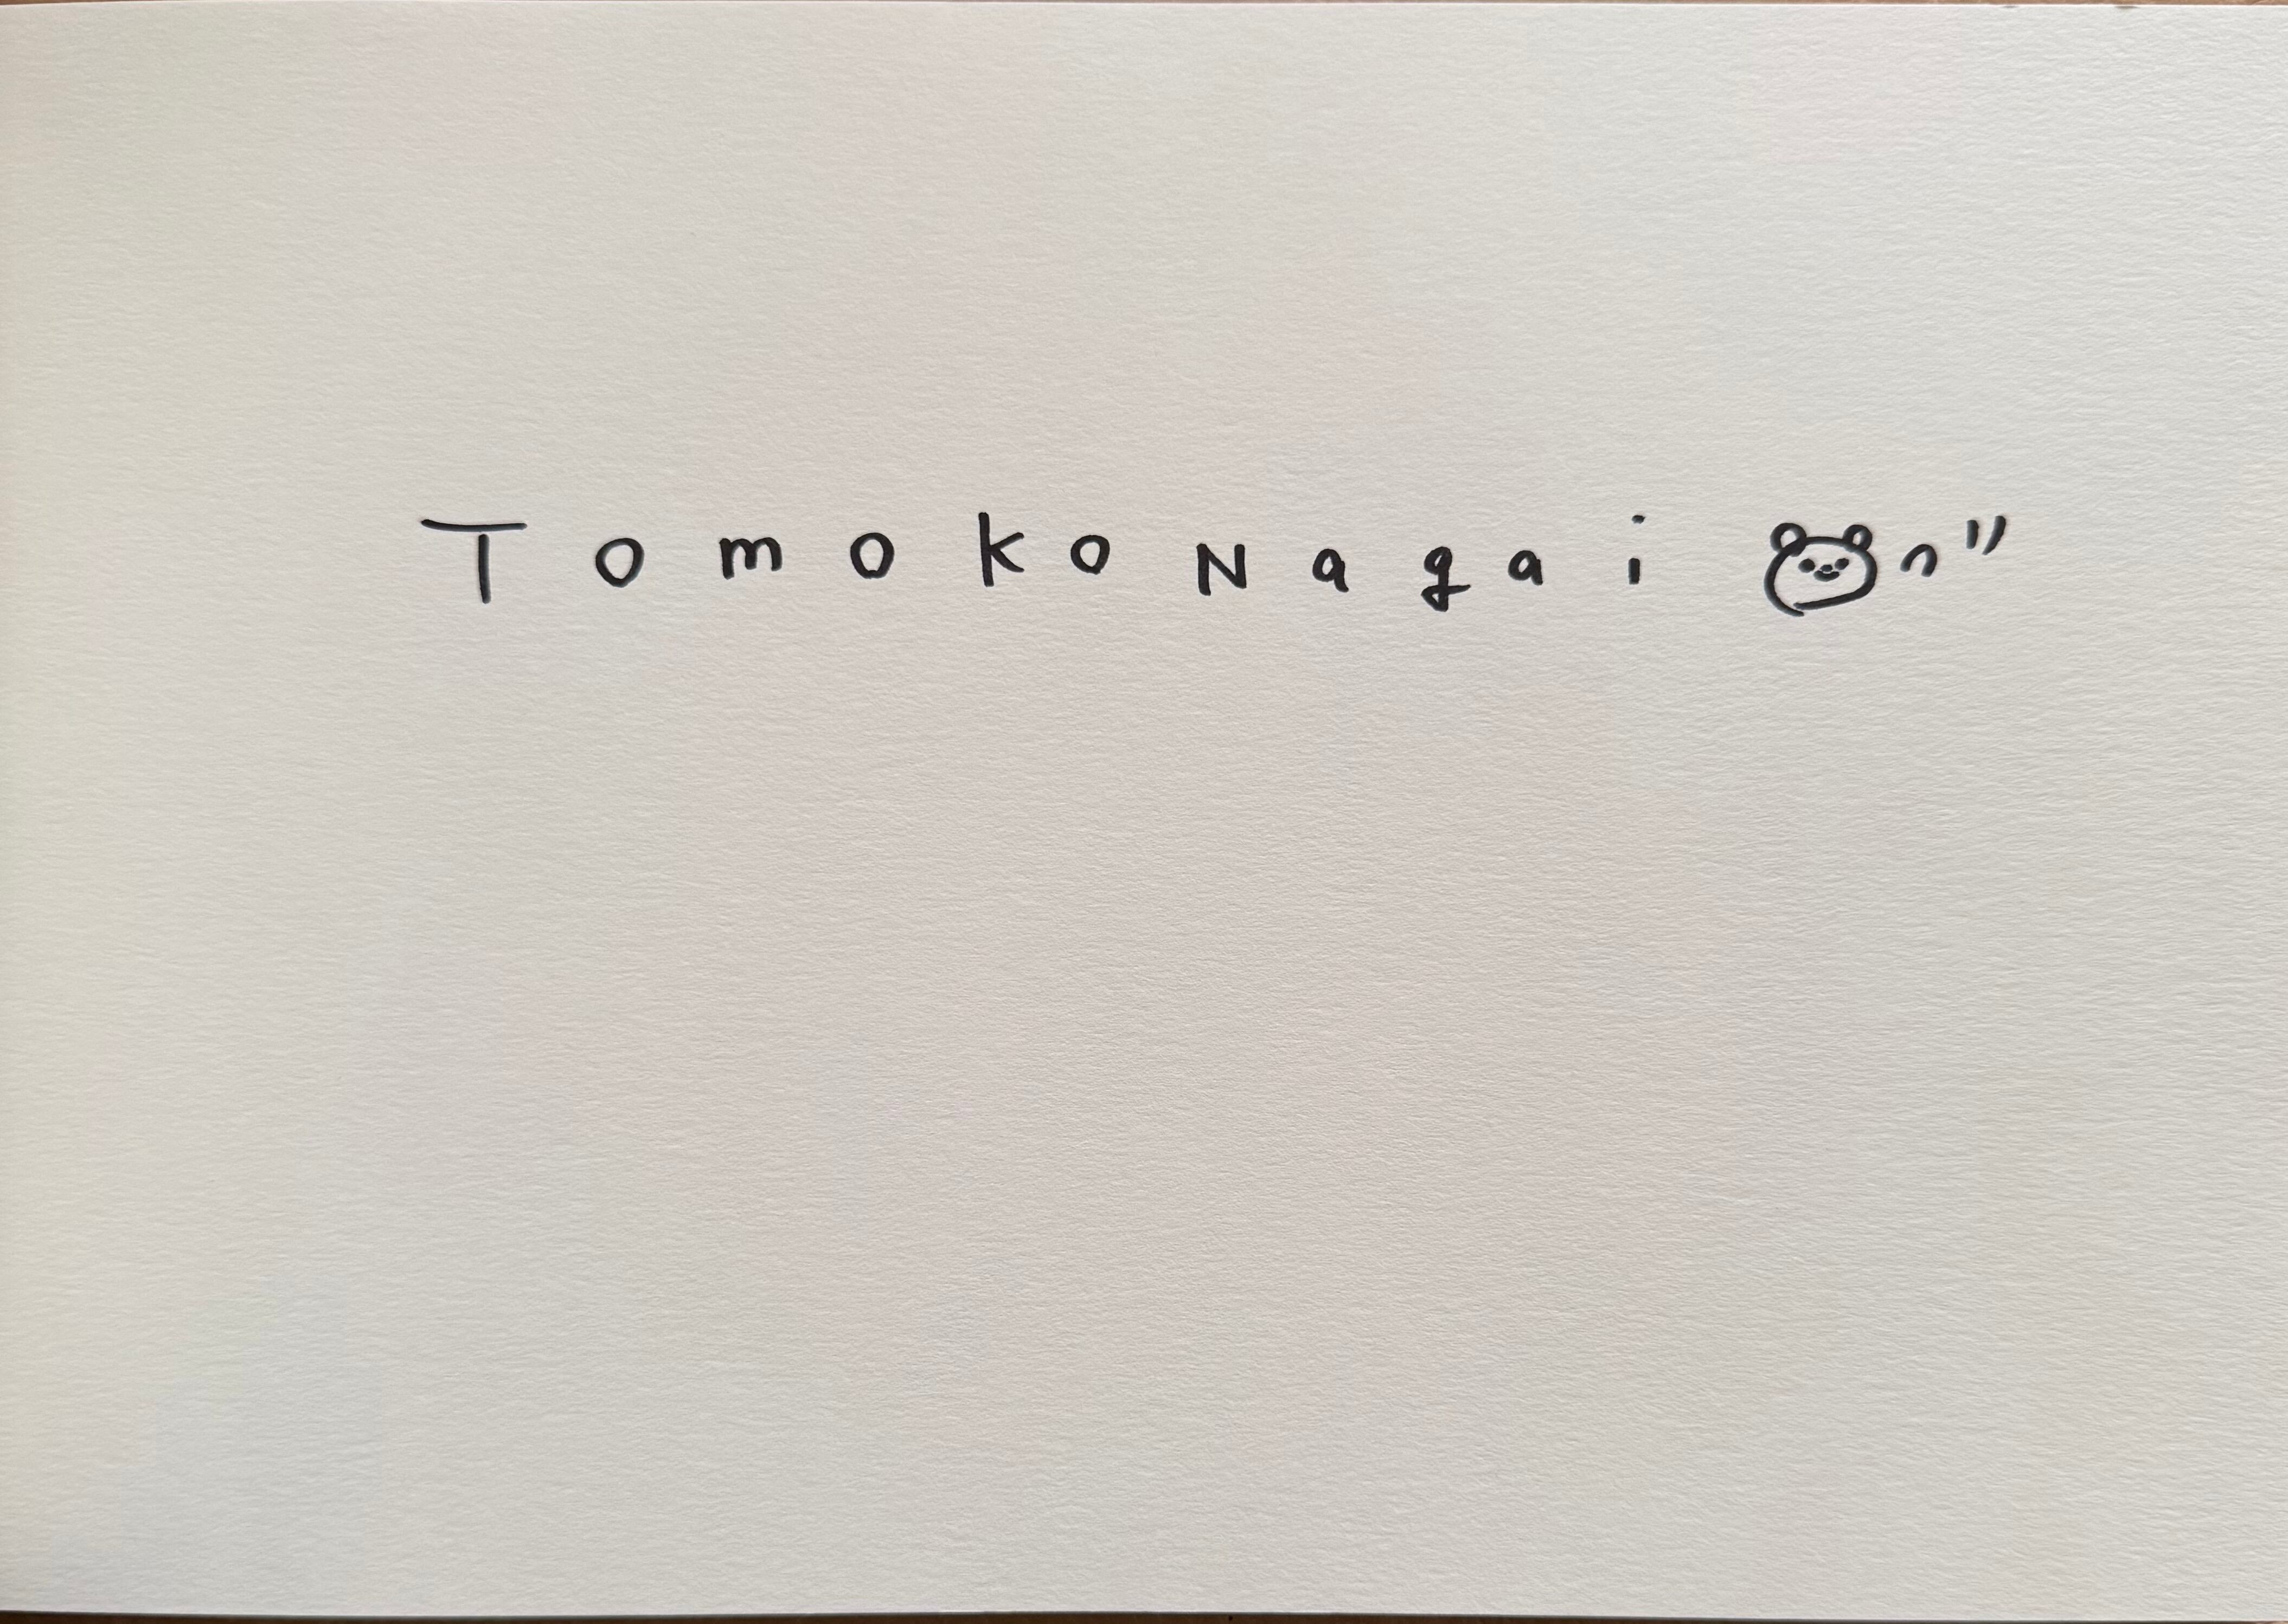 Tomoko Nagai